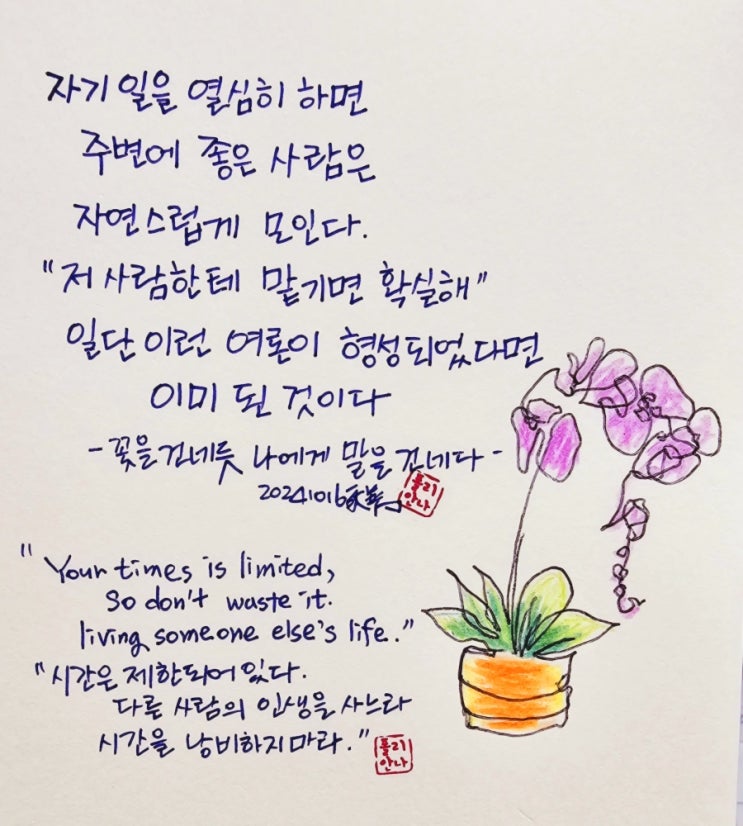 자기 일을 열심히 하면
주변에 좋은 사람은
자연스럽게 모인다.
"저 사람한테 맡기면 확실해"
일단 이런 여론이 형성되었다면
이미 된 것이다
-꽃을 건네듯 나에게 말을 건네다-
20241016
"Your times is limited,
so don't waste it.
living someone else's life."
"시간은 제한되어 있다.
다른 사람의 인생을 사느라
시간을 낭비하지 마라."